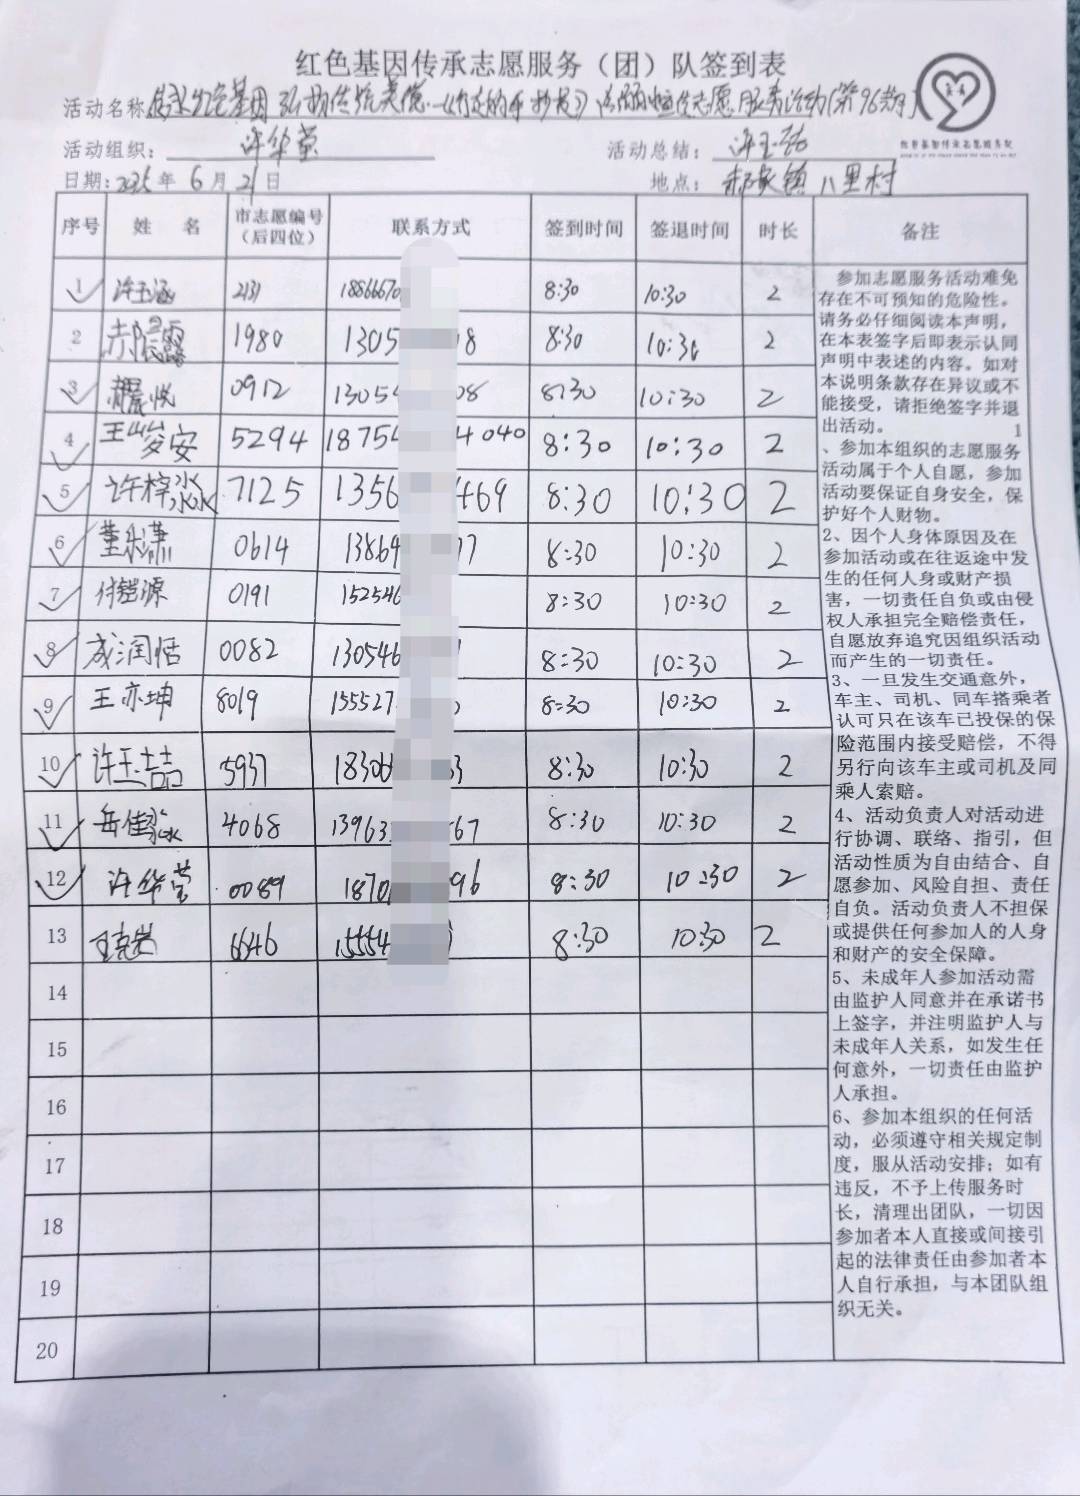 红色基因传承志愿服务（团）队签到表
活动名称 红色基因 弘扬传统美德 志愿服务活动(第96期)
活动组织： 许华莹
活动总结： 许玉喆
日期：2025年 6月 21日
地点： 郝家镇 八里村
序号 姓 名 市志愿编号（后四位） 联系方式 签到时间 签退时间 时长 备注
1 许玉涵 2131 18866670 8:30 10:30 2
2 1980 1305 8 8:30 10:30 2
3 悦 0912 13054 08 8:30 10:30 2
4 王岩安 5294 18754 4040 8:30 10:30 2
5 许梓淼 7125 1356 469 8:30 10:30 2
6 董乐潇 0614 13864 77 8:30 10:30 2
7 付铠源 0191 152546 8:30 10:30 2
8 成润恬 0082 130546 8:30 10:30 2
9 王亦坤 8019 155527 8:30 10:30 2
10 许玉喆 5937 18306 3 8:30 10:30 2
11 岳佳淼 4068 13963 67 8:30 10:30 2
12 许华莹 0089 1870 96 8:30 10:30 2
13 王克岩 6646 15554 8:30 10:30 2
14
15
16
17
18
19
20
参加志愿服务活动难免
存在不可预知的危险性。
请务必仔细阅读本声明，
在本表签字后即表示认同
声明中表述的内容。如对
本说明条款存在异议或不
能接受，请拒绝签字并退
出活动。 1
、参加本组织的志愿服务
活动属于个人自愿，参加
活动要保证自身安全，保
护好个人财物。
2、因个人身体原因及在
参加活动或在往返途中发
生的任何人身或财产损
害，一切责任自负或由侵
权人承担完全赔偿责任，
自愿放弃追究因组织活动
而产生的一切责任。
3、一旦发生交通意外，
车主、司机、同车搭乘者
认可只在该车已投保的保
险范围内接受赔偿，不得
另行向该车主或司机及同
乘人索赔。
4、活动负责人对活动进
行协调、联络、指引，但
活动性质为自由结合、自
愿参加、风险自担、责任
自负。活动负责人不担保
或提供任何参加人的人身
和财产的安全保障。
5、未成年人参加活动需
由监护人同意并在承诺书
上签字，并注明监护人与
未成年人关系，如发生任
何意外，一切责任由监护
人承担。
6、参加本组织的任何活
动，必须遵守相关规定制
度，服从活动安排；如有
违反，不予上传服务时
长，清理出团队，一切因
参加者本人直接或间接引
起的法律责任由参加者本
人自行承担，与本团队组
织无关。